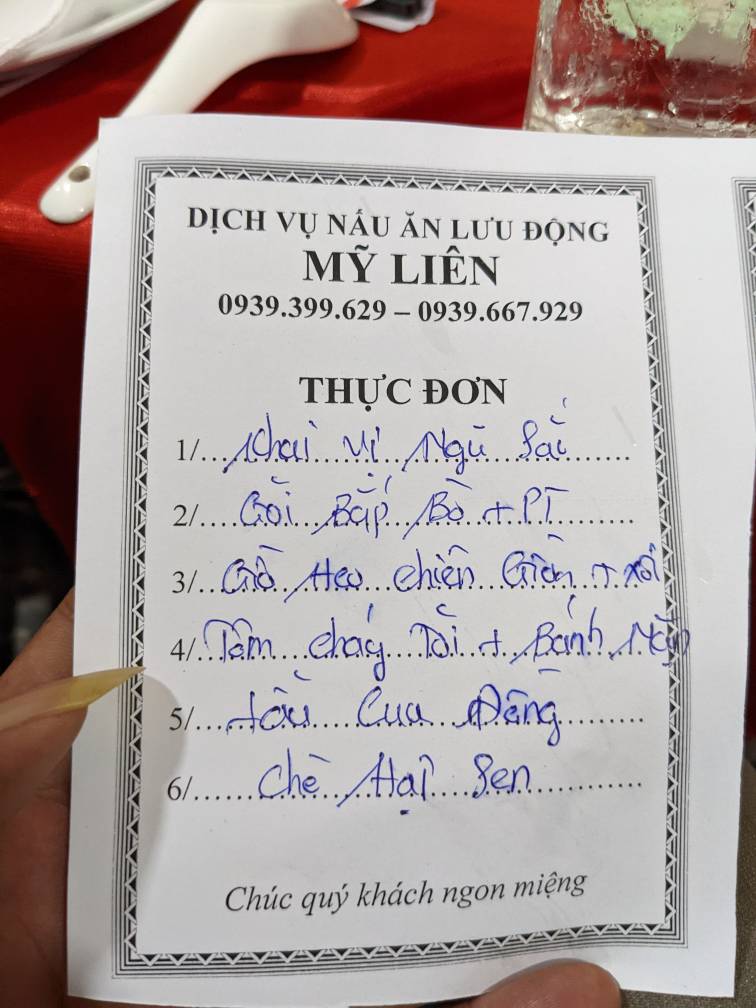 DỊCH VỤ NẤU ĂN LƯU ĐỘNG
MỸ LIÊN
0939.399.629 – 0939.667.929
THỰC ĐƠN
1/...Khai Vị Ngũ Sắc
2/...Gỏi Bắp Bò + PT
3/...Giò Heo chiên Giòn + xôi
4/...Tôm cháy Tỏi + Bánh Mập
5/...Lẩu Cua Đồng
6/...Chè Hạt Sen
Chúc quý khách ngon miệng